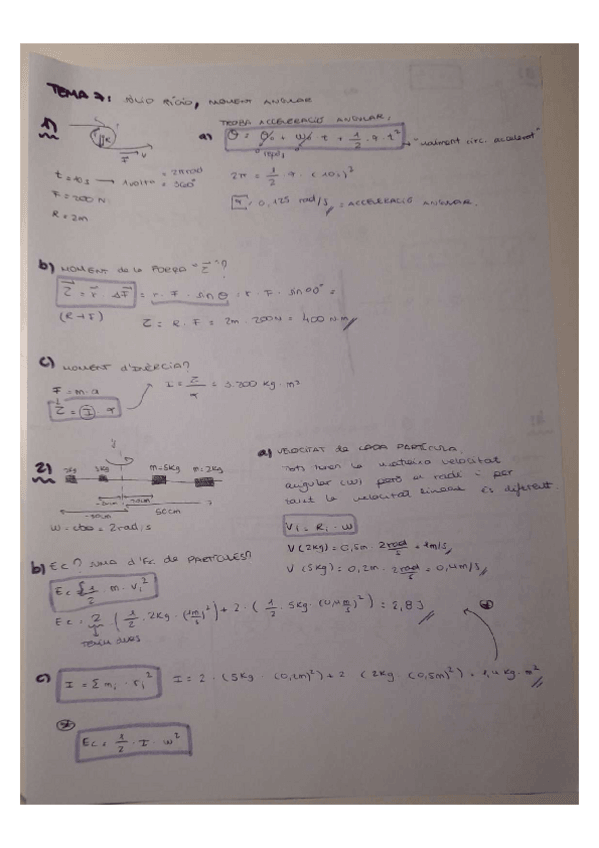 TEMA 7: SÒLID RÍGID, MOMENT ANGULAR
1)
R
F V
t = 10 s → 1 volta = 2π rad = 360°
F = 200 N
R = 2m
TROBA ACCELERACIÓ ANGULAR.
a) θ = θ₀ + ω₀ · t + 1/2 · α · t² → "moviment circ. accelerat"
2π = 1/2 · α · (10s)²
α = 0,125 rad/s = ACCELERACIÓ ANGULAR.
b) MOMENT de la FORÇA "τ"?
τ = r · F = r · F · sin θ = r · F · sin 90° =
(R → r) τ = R · F = 2m · 200N = 400 N·m
c) MOMENT d'INÈRCIA?
F = m · a
τ = I · α
I = τ/α = 3.200 Kg · m²
2)
2Kg 5Kg m=5Kg m=2Kg
20cm
50cm 50cm
ω = cte = 2 rad/s
a) VELOCITAT de CADA PARTÍCULA
Tots tenen la mateixa velocitat
angular (ω) però el radi i per
tant la velocitat lineal és diferent.
Vi = Ri · ω
V(2Kg) = 0,5m · 2 rad/s = 1m/s
V(5Kg) = 0,2m · 2 rad/s = 0,4m/s
b) Ec? SUMA d'Ec de PARTÍCULES?
Ec = Σ 1/2 · m · Vi²
Ec = 2 (1/2 · 2Kg · (1 m/s)²) + 2 · (1/2 · 5Kg · (0,4 m/s)²) = 2,8 J
TENIM DUES
c) I = Σ mi · ri² I = 2 · (5Kg (0,2m)²) + 2 (2Kg · (0,5m)²) = 1,4 Kg · m²
Ec = 1/2 · I · ω²